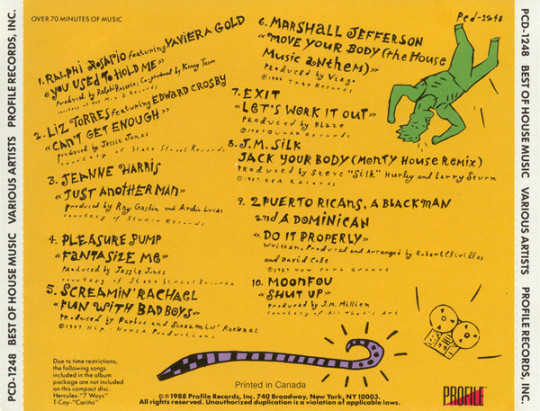 OVER 70 MINUTES OF MUSIC
Pcd-1248
1. RALPHI ROSARIO featuring XAVIERA GOLD
«YOU USED TO HOLD ME»
Produced by Ralphi Rosario, Co-produced by Kenny Jason
2. LIZ TORRES featuring EDWARD CROSBY
«CAN'T GET ENOUGH»
produced by Jessie Jones
courtesy of State Street Records
3. JEANNE HARRIS
«JUST ANOTHER MAN»
produced by Ray Gaskin and Archie Lucas
courtesy of Studio Records
4. PLEASURE PUMP
«FANTASIZE ME»
Produced by Jessie Jones
courtesy of State Street Records
5. SCREAMIN' RACHAEL
«FUN WITH BAD BOYS»
Produced by and Screamin' Rachael
©1987 Productions
6. MARSHALL JEFFERSON
«MOVE YOUR BODY (the House
Music anthem)»
Produced by Virgo
©1986 Trax Records
7. EXIT
«LET'S WORK IT OUT»
Produced by Blaze
Records
8. J.M. SILK
JACK YOUR BODY (MONTY HOUSE REMIX)
Produced by Steve "Silk" Hurley and Larry Sturm
Records
9. 2 PUERTO RICANS, A BLACKMAN
and A DOMINICAN
«DO IT PROPERLY»
Written, Produced and Arranged by Robert Clivilles
and David Cole
©1987 Groove
10. MOONFOU
«SHUT UP»
Produced by J.M. Million
Courtesy of All That's Art
Due to time restrictions,
the following songs
included in the album
package are not included on
this compact disc:
Hercules-"7 Ways"
T-Coy-"Cariño"
Printed in Canada
℗©1988 Profile Records, Inc. 740 Broadway, New York, NY 10003.
All rights reserved. Unauthorized duplication is a violation of applicable laws.
PROFILE
PCD-1248 BEST OF HOUSE MUSIC VARIOUS ARTISTS PROFILE RECORDS, INC.
PCD-1248 BEST OF HOUSE MUSIC VARIOUS ARTISTS PROFILE RECORDS, INC.